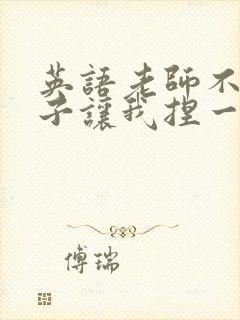 英語老師不
子讓我捏一
傅瑞